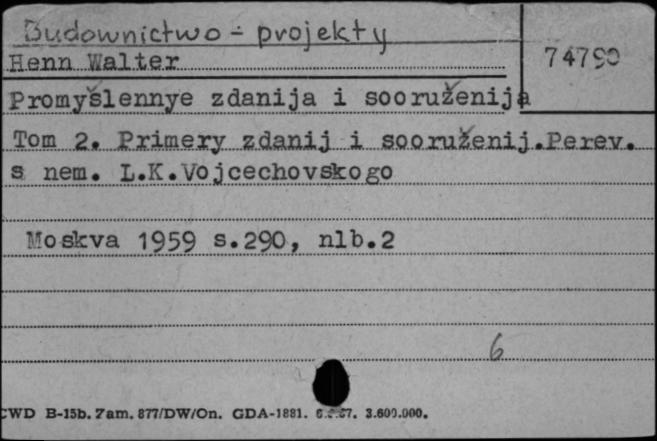 Budownictwo - projekty
Henn Walter
74790
Promyšlennye zdanija i sooruženija
Tom 2. Primery zdanij i sooruženij.Perev.
s nem. L.K.Vojcechovskogo
Moskva 1959 s.290, nlb.2
6
CWD B-15b. Zam. 877/DW/On. GDA-1881. 3.600.000.